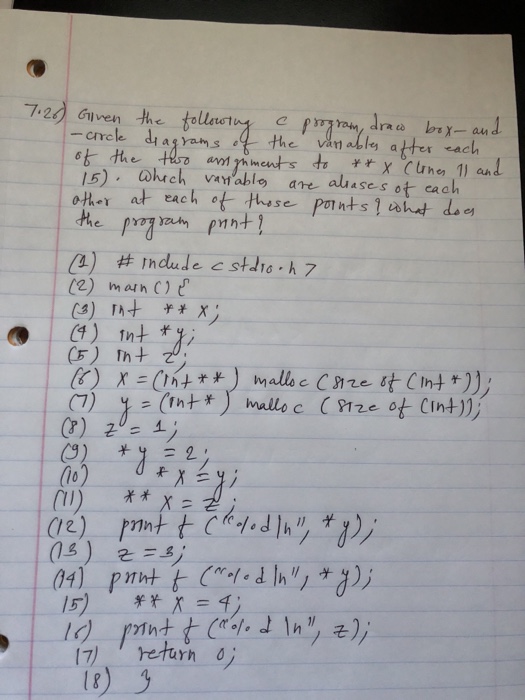 7.26) Given the following c program, draw box- and
-circle diagrams of the variables after each
of the two assignments to ** x (lines 11 and
15). Which variables are aliases of each
other at each of those points? What does
the program print?
(1) # include < stdio.h >
(2) main () {
(3) int ** x;
(4) int *y;
(5) int z;
(6) x = (int **) malloc (size of (int *));
(7) y = (int *) malloc (size of (int));
(8) z = 1;
(9) *y = 2;
(10) *x = y;
(11) ** x = z;
(12) print f ("%d\n", *y);
(13) z = 3;
(14) print f ("%d\n", *y);
15) ** x = 4;
16) print f ("%d \n", z);
17) return 0;
18) }